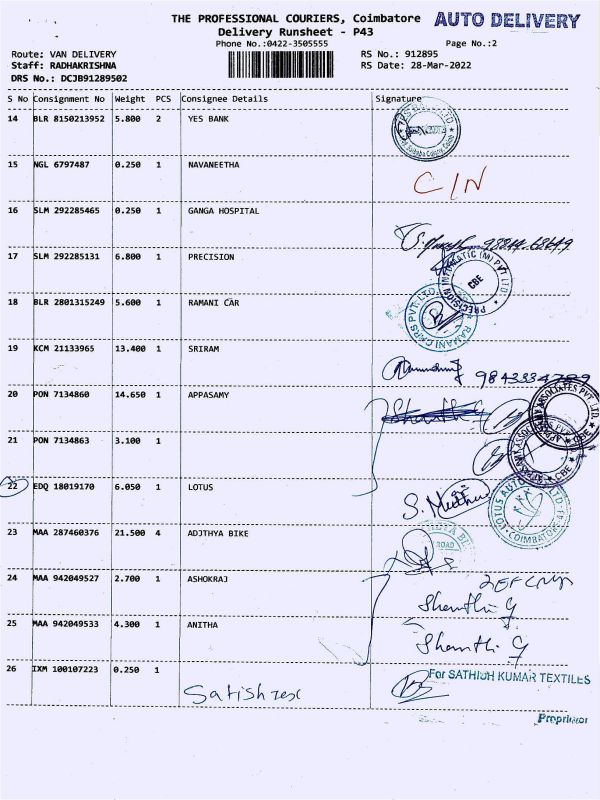 THE PROFESSIONAL COURIERS, Coimbatore AUTO DELIVERY
Delivery Runsheet - P43
Phone No.:0422-3505555 Page No.:2
Route: VAN DELIVERY RS No.: 912895
Staff: RADHAKRISHNA RS Date: 28-Mar-2022
DRS No.: DCJB91289502
S No Consignment No Weight PCS Consignee Details Signature
14 BLR 8150213952 5.800 2 YES BANK
15 NGL 6797487 0.250 1 NAVANEETHA
C/N
16 SLM 292285465 0.250 1 GANGA HOSPITAL
17 SLM 292285131 6.800 1 PRECISION
PRECISION INFORMATIC (M) PVT LTD CBE
18 BLR 2801315249 5.600 1 RAMANI CAR
RAMANI CARS PVT. LTD.
19 KCM 21133965 13.400 1 SRIRAM
20 PON 7134860 14.650 1 APPASAMY
APPASAMY ASSOCIATES PVT. LTD. CBE
21 PON 7134863 3.100 1
22 EDQ 18019170 6.050 1 LOTUS
LOTUS COIMBATORE
23 MAA 287460376 21.500 4 ADJTHYA BIKE
ROAD
24 MAA 942049527 2.700 1 ASHOKRAJ
Shanthi G
25 MAA 942049533 4.300 1 ANITHA
Shanthi G
26 IXM 100107223 0.250 1
Satish Tex
For SATHISH KUMAR TEXTILES
Proprietor